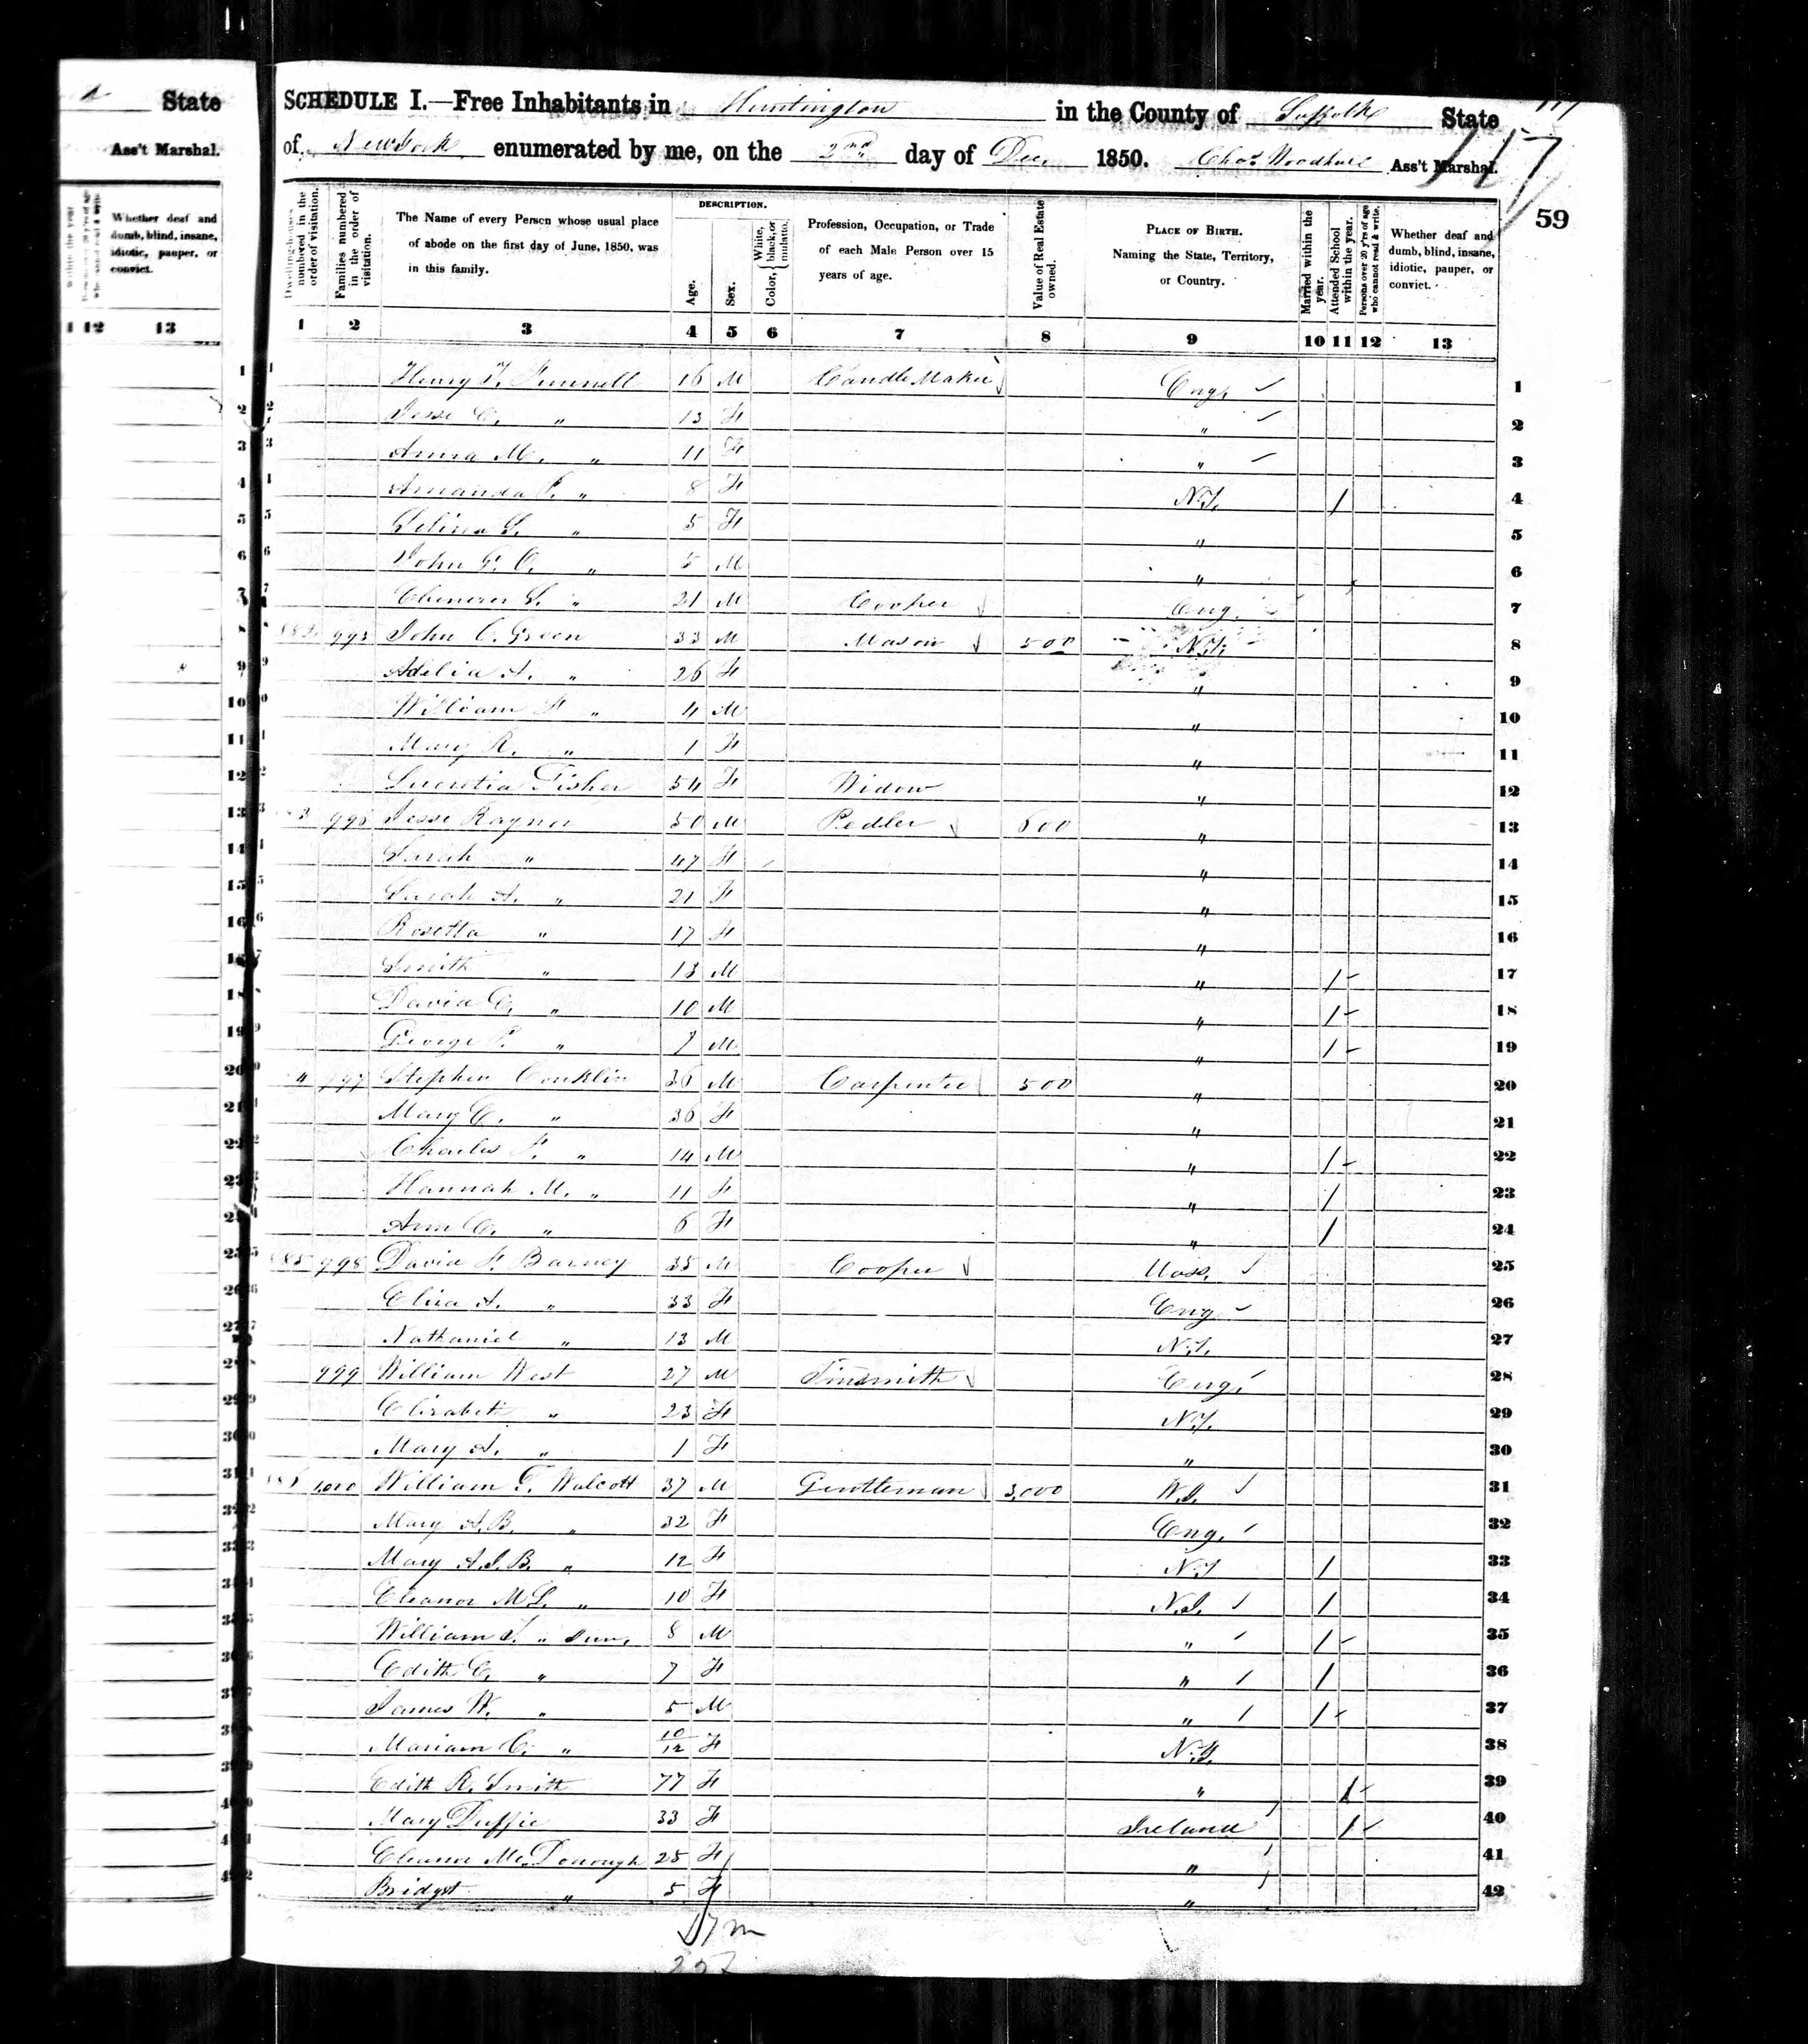 State
Ass't Marshal.
Whether deaf and dumb, blind, insane, idiotic, pauper, or convict.
1 12 13
SCHEDULE I.—Free Inhabitants in Huntington in the County of Suffolk State
of New York enumerated by me, on the 2nd day of Dec. 1850. Chas Woodhull Ass't Marshal.
117
59
Dwelling-houses numbered in the order of visitation.
Families numbered in the order of visitation.
The Name of every Person whose usual place of abode on the first day of June, 1850, was in this family.
DESCRIPTION.
Age.
Sex.
Color, White, black, or mulatto.
Profession, Occupation, or Trade of each Male Person over 15 years of age.
Value of Real Estate owned.
PLACE OF BIRTH. Naming the State, Territory, or Country.
Married within the year.
Attended School within the year.
Persons over 20 y'rs of age who cannot read & write.
Whether deaf and dumb, blind, insane, idiotic, pauper, or convict.
1 2 3 4 5 6 7 8 9 10 11 12 13
1 Henry 16 M Candle Maker Eng. 1
2 Jesse C. " 13 F " 2
3 Anna M. " 11 F " 3
4 Amanda " 8 F N.Y. / 4
5 " 5 F " 5
6 John " 5 M " 6
7 Ebenezer S. " 21 M Cooper Eng. 7
8 995 John C. Green 33 M Mason 500 N.Y. 8
9 Adelia A. " 26 F " 9
10 William H " 4 M " 10
11 Mary R. " 1 F " 11
12 Lucretia Fisher 54 F Widow " 12
13 996 Jesse Raynor 50 M Pedler 600 " 13
14 Sarah " 47 F " 14
15 Sarah A. " 21 F " 15
16 Rosetta " 17 F " 16
17 Smith " 13 M " / 17
18 David C. " 10 M " / 18
19 George P. " 7 M " / 19
20 " 997 Stephen Conklin 36 M Carpenter 500 " 20
21 Mary C. " 36 F " 21
22 Charles F. " 14 M " / 22
23 Hannah M. " 11 F " / 23
24 Ann C. " 6 F " / 24
25 885 998 David F. Barney 35 M Cooper Mass. 25
26 Eliza A. " 33 F Eng 26
27 Nathaniel " 13 M N.Y. 27
28 999 William West 27 M Tinsmith Eng. 28
29 Elizabeth " 23 F N.Y. 29
30 Mary A. " 1 F " 30
31 1,000 William T. Walcott 37 M Gentleman 3,000 W.I. 31
32 Mary A.B. " 32 F Eng. 32
33 Mary A.S.B. " 12 F N.Y / 33
34 Eleanor M.L. " 10 F N.J. / 34
35 William T. " Jun. 8 M " / 35
36 Edith C. " 7 F " / 36
37 James W. " 5 M " / 37
38 Mariam C. " 10/12 F N.Y. 38
39 Edith R. Smith 77 F " / 39
40 Mary Duffie 33 F Ireland / 40
41 Eleanor McDonough 25 F " 41
42 Bridget " 5 F " 42
17 m